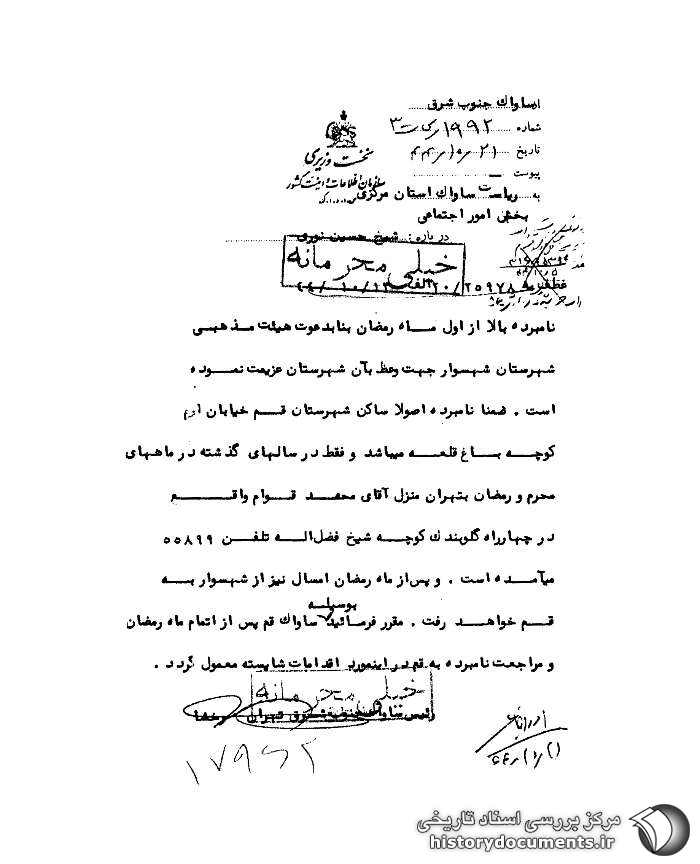 ازساواك جنوب شرق
شماره ۱۹۹۲ / ت۳
تاریخ ۲۱ / ۱۰ / ۴۴
پیوست
نخست وزیری
سازمان اطلاعات و امنیت کشور
به ریاست ساواك استان مرکزی
بخش امور اجتماعی
درباره : شیخ حسین نوری
خیلی محرمانه
۲۰/۲۵۹۷۸ الف
نامبرده بالا از اول مـاه رمضان بنابدعوت هیئت مـذهبـی
شهرستان شهسوار جهت وعظ بآن شهرستان عزیمت نمـوده
است . ضمنا نامبرده اصولا ساکن شهرستان قـم خیابان ارم
کوچـه بـاغ قلعـه میباشد و فقط در سالهای گذشته در ماههای
محرم و رمضان بتهران منزل آقای محمـد قـوام واقـع
در چهارراه گلوبندك کوچـه شیخ فضل‌الـه تلفـن ۵۵۸۹۹
میآمـده است . و پس‌از ماه رمضان امسال نیز از شهسوار بـه
بوسیلـه
قـم خواهـد رفت . مقرر فرمائید ساواك قم پس از اتمام ماه رمضان
و مراجعت نامبرده به قم در اینمورد اقدامات شایسته معمول گردد .
خیلی محرمانه
رئیس ساواك جنوب شرق تهران
۲۱/۱۰/۴۴
مرکز بررسی اسناد تاریخی
historydocuments.ir